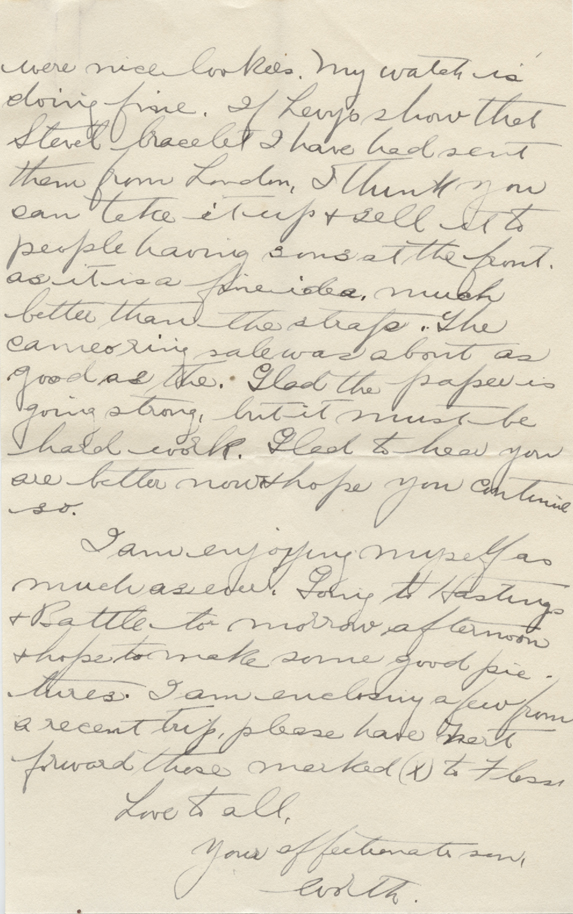 were nice cookies. My watch is
doing fine. If Levys show that
Steel bracelet I have had sent
them from London, I think you
can take it up & sell it to
people having sons at the front.
as it is a fine idea, much
better than the straps. The
cameo ring sale was about as
good as the. Glad the paper is
going strong, but it must be
hard work. Glad to hear you
are better now & hope you continue
so.
I am enjoying myself as
much as ever. Going to Hastings
& Battle to morrow afternoon
& hope to make some good pic-
tures. I am enclosing a few from
a recent trip, please have
forward those marked (x) to Floss
Love to all,
Your affectionate son,
Worth.